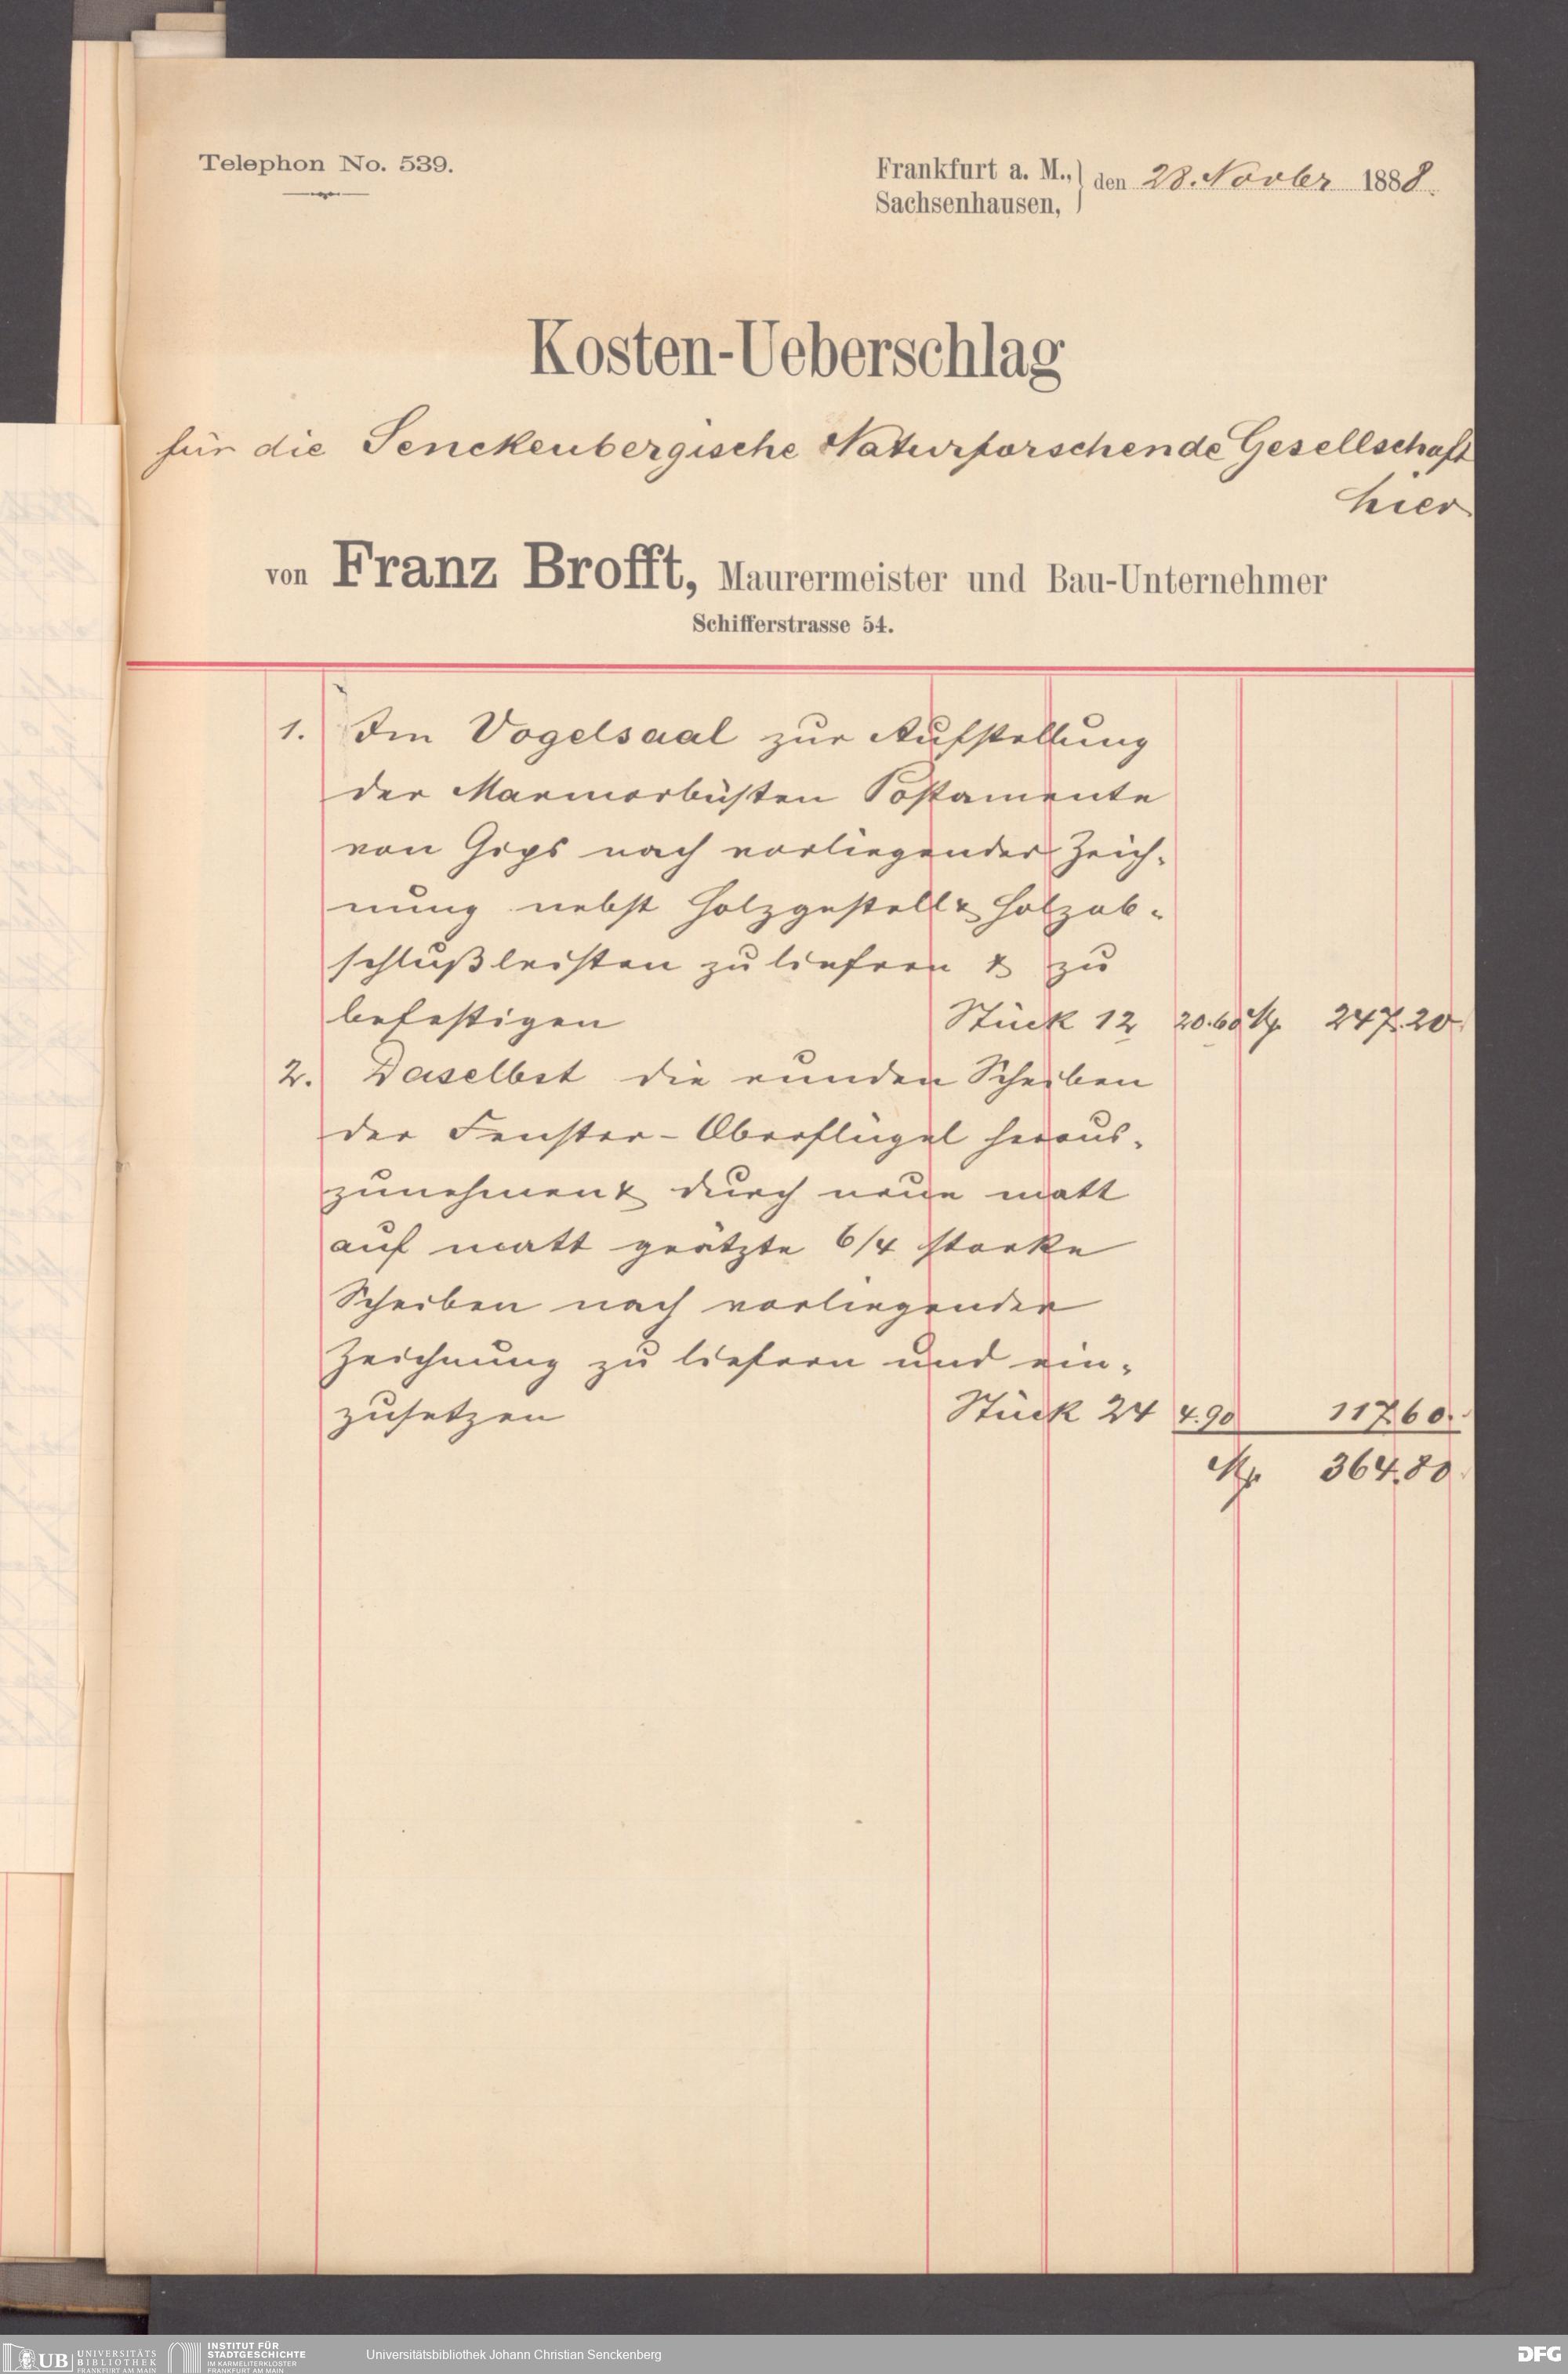 Telephon No. 539.
Frankfurt a. M.,
Sachsenhausen,
den 28. Novber 1888.
Kosten-Ueberschlag
für die Senckenbergische Naturforschende Gesellschaft
hier
von Franz Brofft, Maurermeister und Bau-Unternehmer
Schifferstrasse 54.
1. Im Vogelsaal zur Aufstellung
der Marmorbüsten Postamente
von Gips nach vorliegender Zeich-
nung nebst Holzgestell & Holzab-
schlußleisten zu liefern & zu
befestigen Stück 12 20.60 M 247.20
2. Daselbst die runden Scheiben
der Fenster-Oberflügel heraus-
zunehmen & durch neue matt
auf matt geätzte 6/4 starke
Scheiben nach vorliegender
Zeichnung zu liefern und ein-
zusetzen Stück 24 4.90 117.60.
M 364.80
UB UNIVERSITÄTS
BIBLIOTHEK
FRANKFURT AM MAIN
INSTITUT FÜR
STADTGESCHICHTE
IM KARMELITERKLOSTER
FRANKFURT AM MAIN
Universitätsbibliothek Johann Christian Senckenberg
DFG